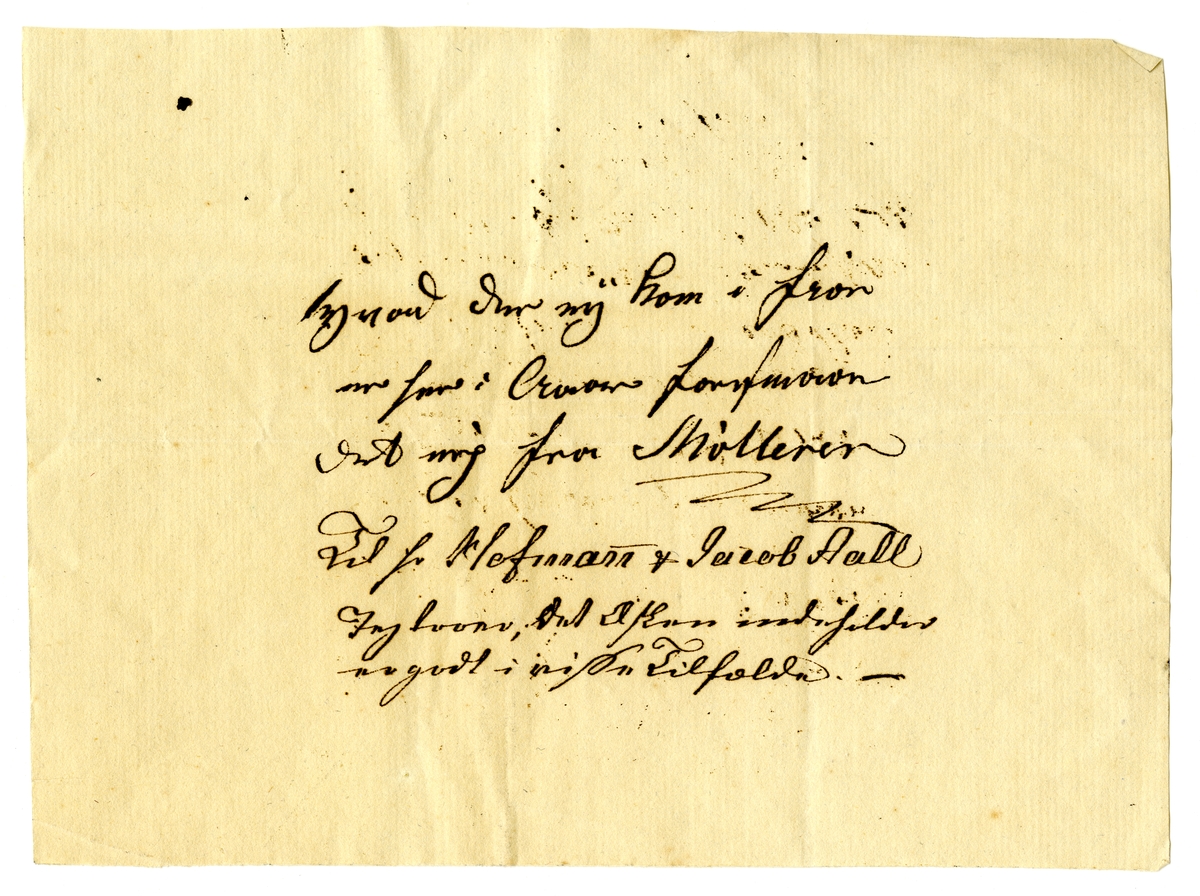 Hvad der ny kom i fior
er her i Aar
det nye fra Möllerer
Til Hr Hofmañ & Jacob Aall
Jeg troer, det Æsken indeholder
er godt i visse Tilfælde. —